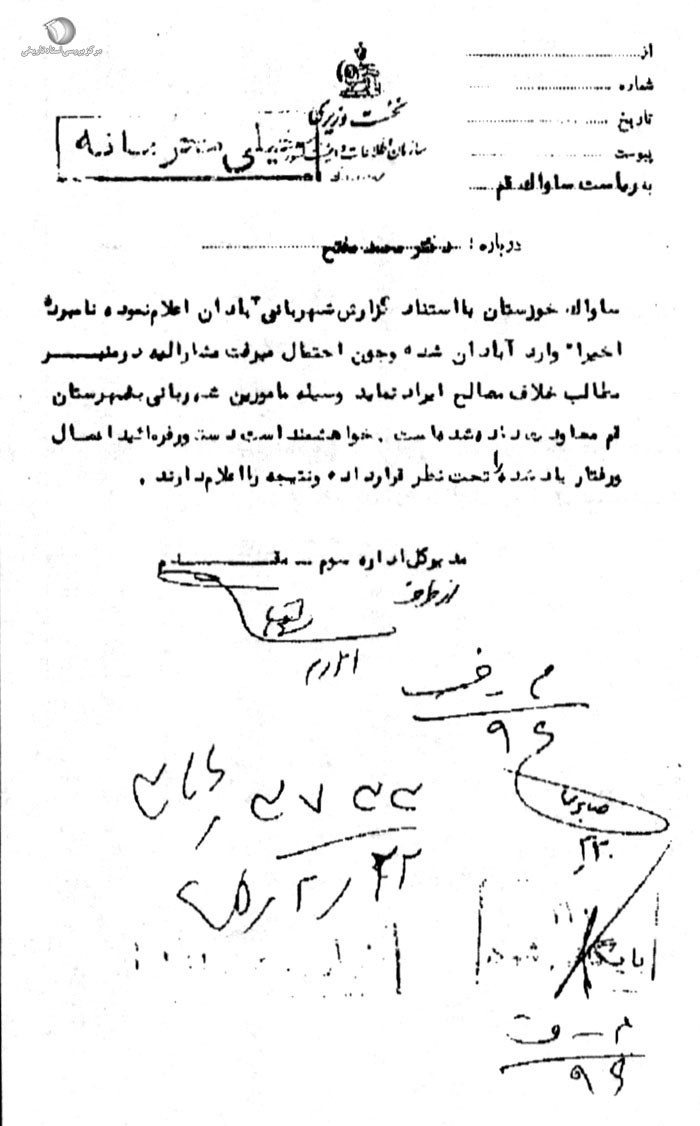 مرکز بررسی اسناد تاریخی
از
شماره
تاریخ
پیوست
به ریاست ساواک قم
نخست وزیری
سازمان اطلاعات و امنیت کشور
خیلی محرمانه
درباره : دکتر محمد مفتح
ساواک خوزستان بااستناد گزارش شهربانی آبادان اعلام نموده نامبرده
اخیرا" وارد آبادان شده وچون احتمال میرفت مشارالیه درمنبر
مطالب خلاف مصالح ایراد نماید وسیله مامورین شهربانی بشهرستان
قم معاودت داده شده است . خواهشمند است دستورفرمائید اعمال
ورفتار یادشده را تحت نظر قرارداده ونتیجه رااعلام دارند .
مدیرکل اداره سوم ــ مقدم
از طرف
م ــ ف
۹۶
صابری
۲۷۴۴
۲۲
بایگانی شود
م ــ ف
۹۶